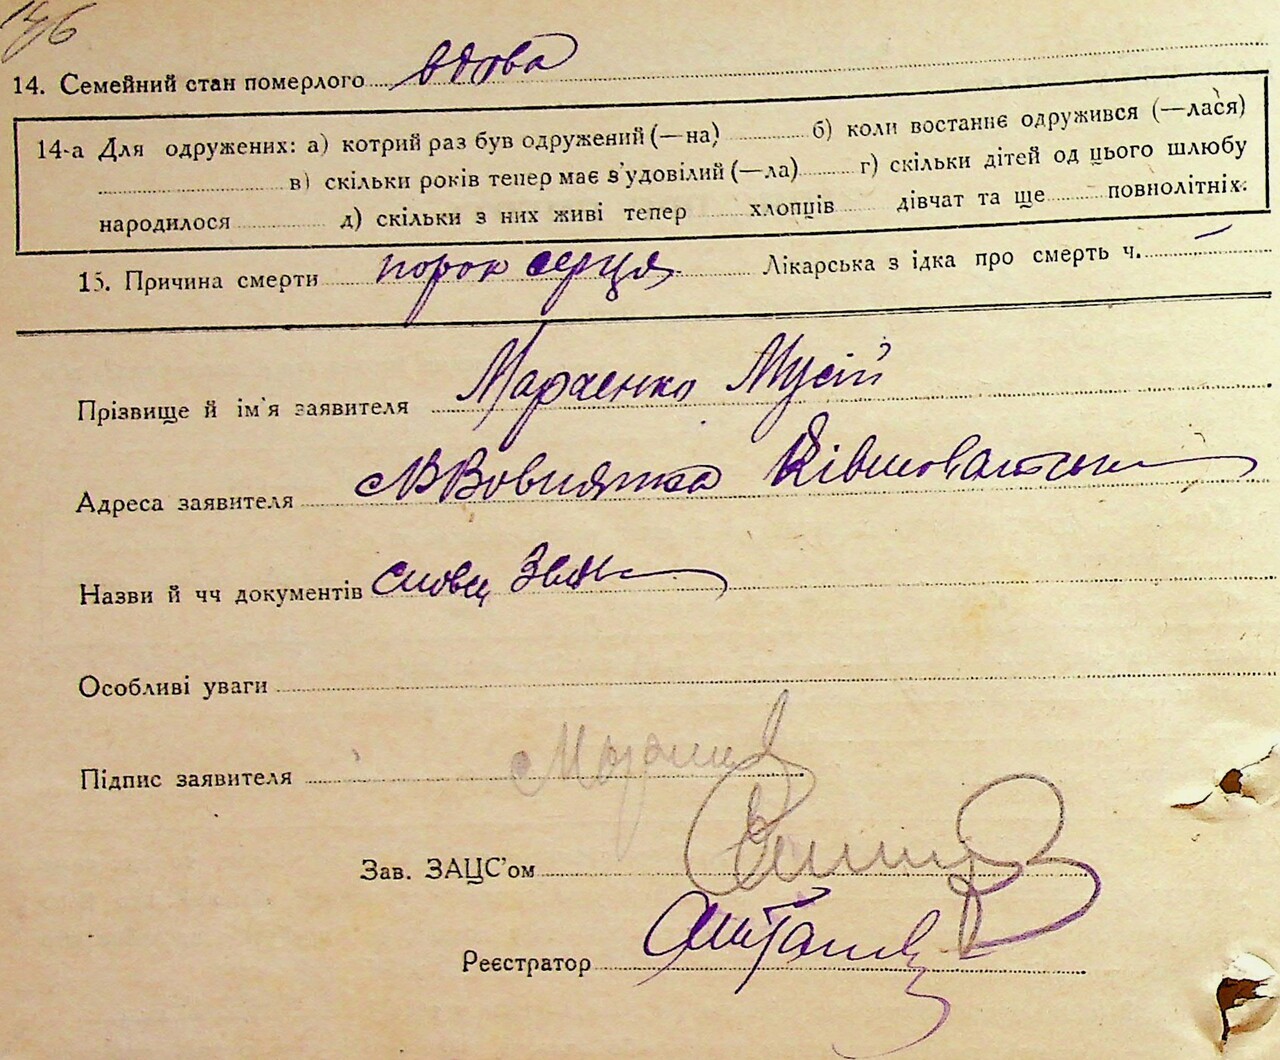 146
14. Семейний стан померлого вдова
14-а Для одружених: а) котрий раз був одружений (—на) б) коли востаннє одружився (—лася)
в) скільки років тепер має з'удовілий (—ла) г) скільки дітей од цього шлюбу
народилося д) скільки з них живі тепер хлопців дівчат та ще повнолітніх.
15. Причина смерти порок серця Лікарська з ідка про смерть ч. —
Прізвище й ім'я заявителя Марченко Мусій
Адреса заявителя
Назви й чч документів
Особливі уваги
Підпис заявителя
Зав. ЗАЦС'ом
Реєстратор